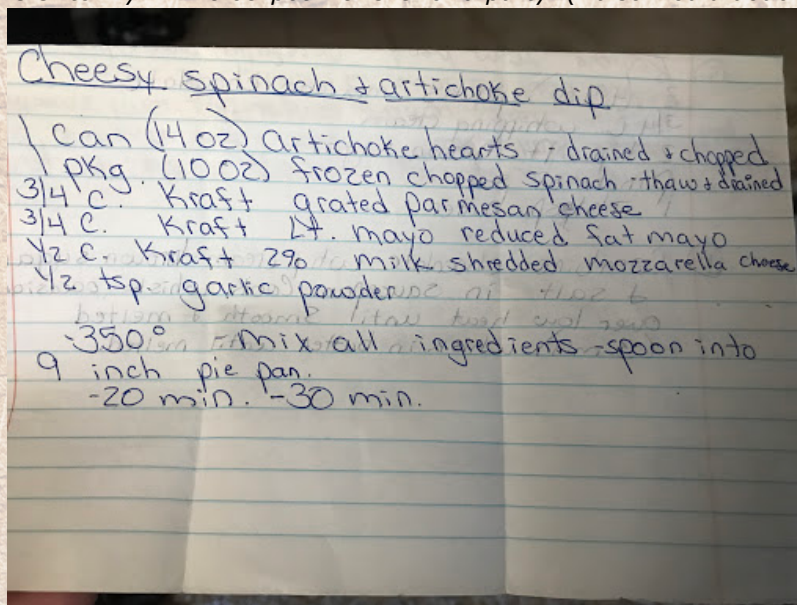 Cheesy spinach & artichoke dip
1 can (14 oz) artichoke hearts - drained & chopped
1 pkg. (10 oz) frozen chopped spinach - thaw & drained
3/4 c. Kraft grated parmesan cheese
3/4 c. Kraft Lt. mayo reduced fat mayo
1/2 c. Kraft 2% milk shredded mozzarella cheese
1/2 tsp garlic powder
-350° - mix all ingredients - spoon into
9 inch pie pan.
-20 min. -30 min.